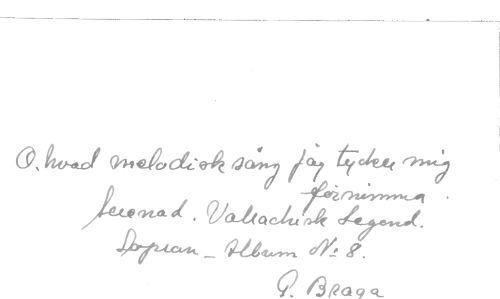 O, hvad melodisk sång jag tycker mig
förnimma.
Serenad. Vallachisk Legend.
Sopran - Album No 8.
G. Braga